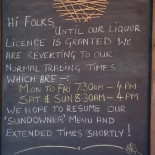 Hi Folks,
Until our Liquor
Licence is granted we
are reverting to our
normal trading times
which are :-
Mon to Fri 7:30am - 4pm
Sat & Sun 8:30am - 4pm
We hope to resume our
'Sundowner' menu and
extended times shortly!